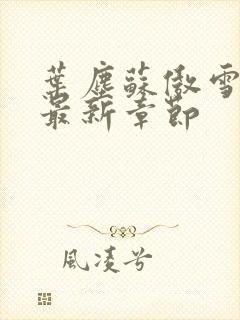 葉塵蘇傲雪
最新章節
風凌兮